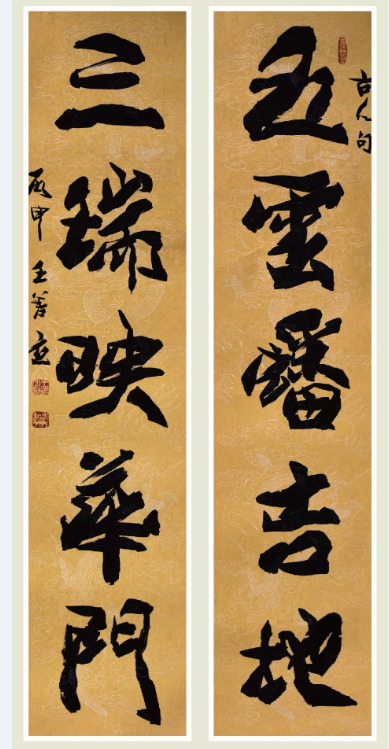 古人句
五雲蟠吉地
三瑞映華門
丙申王